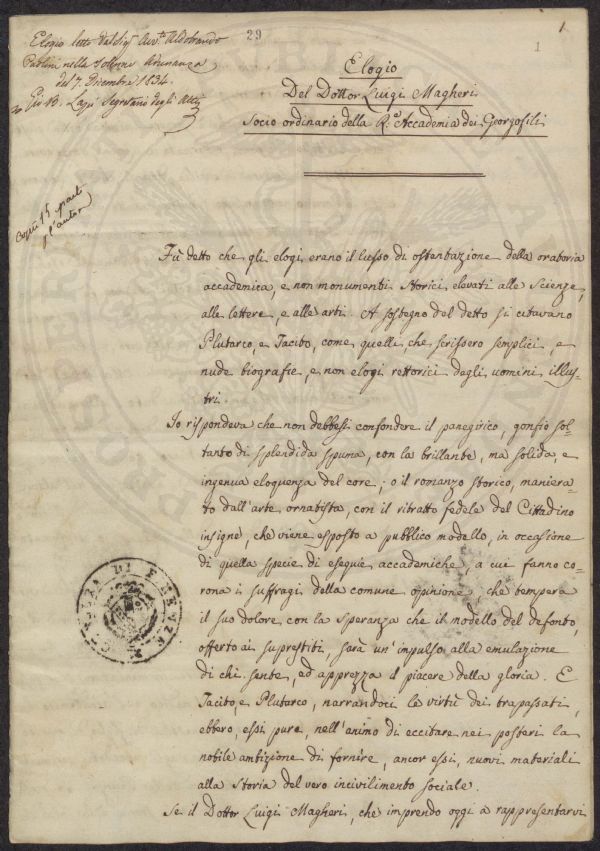 29
1.
1
Elogio letto dal Sigr. Avvto. Aldobrando
Paolini nella Solenne Adunanza
del 7. Dicembre 1834.
Gio B. Lapi Segretario degli Atti
Elogio
Del Dottor Luigi Magheri
Socio ordinario della R.e Accademia dei Georgofili
Copie 15
l'autor
Fù detto che gli elogi erano il lusso di ostentazione della oratoria
accademica, e non monumenti Storici elevati alle Scienze,
alle lettere, e alle arti. A sostegno del detto si citavano
Plutarco, e Tacito, come quelli, che scrissero semplici, e
nude biografie, e non elogi rettorici degli uomini illus-
tri.
Io rispondeva che non debbesi confondere il panegirico, gonfio sol-
tanto di splendida spuma, con la brillante, ma solida, e
ingenua eloquenza del core; o il romanzo storico, maniera-
to dall'arte ornatista, con il ritratto fedele del Cittadino
insigne, che viene esposto a pubblico modello, in occasione
di quella specie di esequie accademiche, a cui fanno co-
rona i suffragi della comune opinione, che tempera
il suo dolore, con la speranza che il modello del defonto,
offerto ai suprestiti, sarà un'impulso alla emulazione
di chi sente, ed apprezza il piacere della gloria. E
Tacito, e Plutarco, narrandoci le virtù dei trapassati,
ebbero, essi pure, nell'animo di eccitare nei posteri la
nobile ambizione di fornire, ancor essi, nuovi materiali
alla Storia del vero incivilimento sociale.
Se il Dottor Luigi Magheri, che imprendo oggi a rappresentarvi